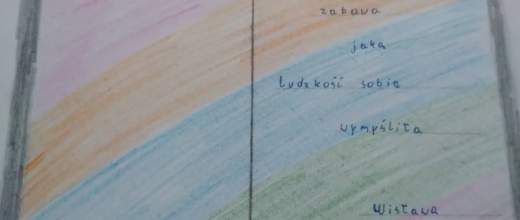 zabawa
jaką
ludzkość sobie
wymyśliła
Wisława